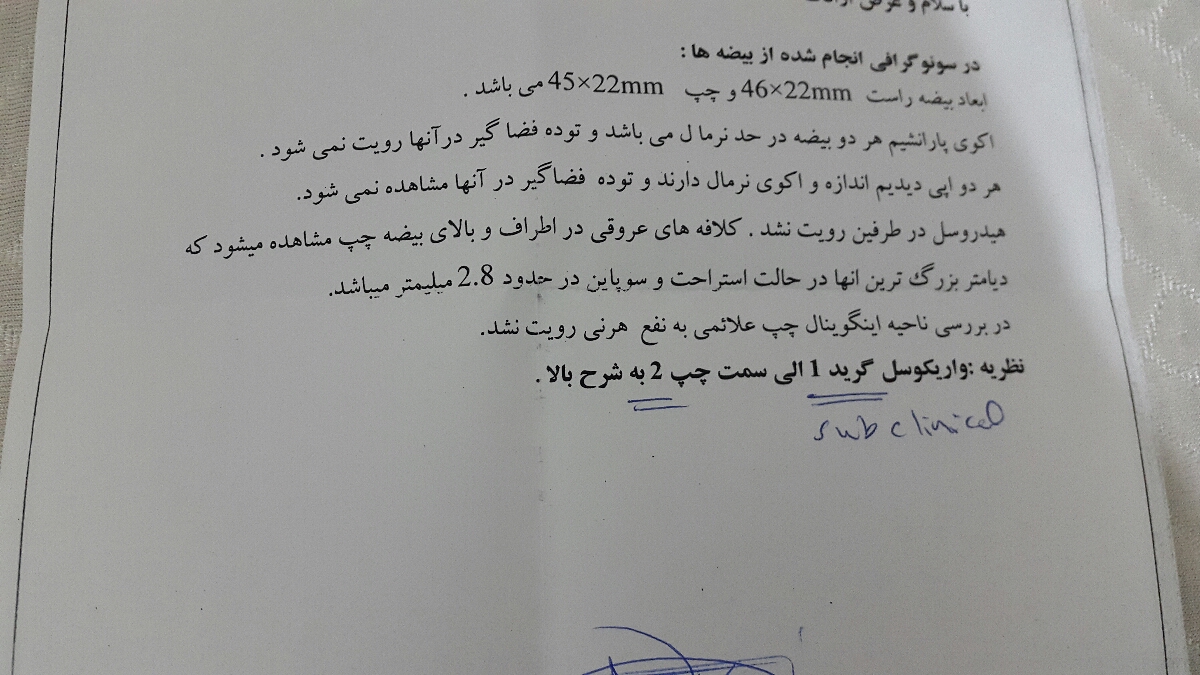 با سلام و عرض
در سونوگرافی انجام شده از بیضه ها :
ابعاد بیضه راست 46×22mm و چپ 45×22mm می باشد .
اکوی پارانشیم هر دو بیضه در حد نرمال می باشد و توده فضا گیر درآنها رویت نمی شود .
هر دو اپی دیدیم اندازه و اکوی نرمال دارند و توده فضاگیر در آنها مشاهده نمی شود.
هیدروسل در طرفین رویت نشد . کلافه های عروقی در اطراف و بالای بیضه چپ مشاهده میشود که
دیامتر بزرگ ترین انها در حالت استراحت و سوپاین در حدود 2.8 میلیمتر میباشد.
در بررسی ناحیه اینگوینال چپ علائمی به نفع هرنی رویت نشد.
نظریه :واریکوسل گرید 1 الی سمت چپ 2 به شرح بالا .
subclinical